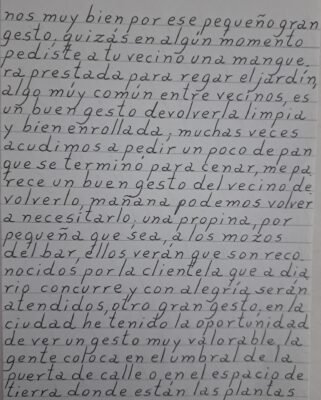 nos muy bien por ese pequeño gran
gesto, quizás en algún momento
pediste a tu vecino una mangue_
ra prestada para regar el jardín,
algo muy común entre vecinos, es
un buen gesto devolverla limpia
y bien enrollada, muchas veces
acudimos a pedir un poco de pan
que se terminó para cenar, me pa_
rece un buen gesto del vecino de
volverlo, mañana podemos volver
a necesitarlo, una propina, por
pequeña que sea, a los mozos
del bar, ellos verán que son reco_
nocidos por la clientela que a dia_
rio concurre y con alegría serán
atendidos, otro gran gesto, en la
ciudad he tenido la oportunidad
de ver un gesto muy valorable, la
gente coloca en el umbral de la
puerta de calle o en el espacio de
tierra donde están las plantas